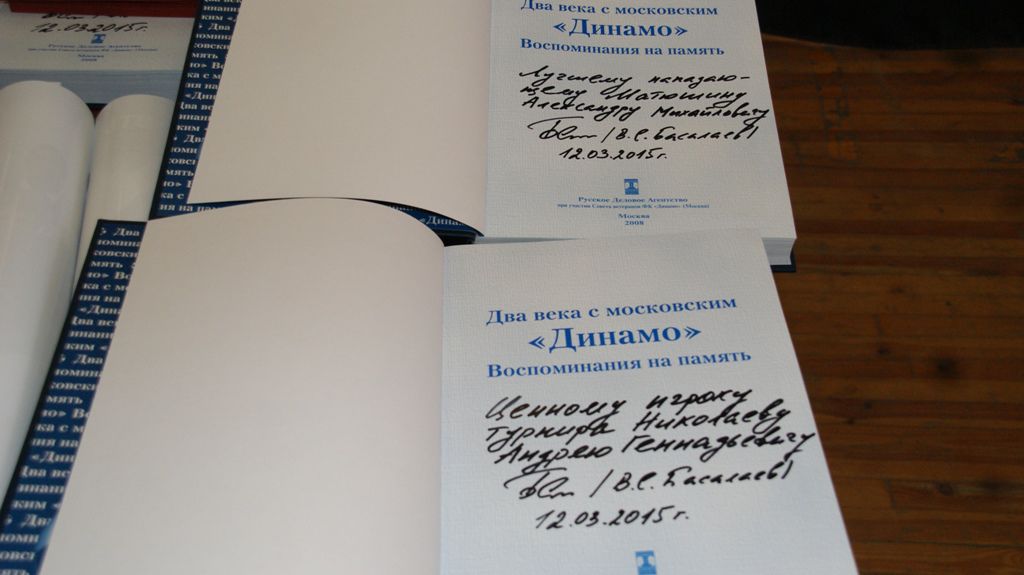 12.03.2015г.
Русское Деловое Агентство
Москва
2008
Два века с московским
«Динамо»
Воспоминания на память
Лучшему нападаю-
щему Матюшину
Александру Михайловичу
/В.С. Басалаев/
12.03.2015г.
Русское Деловое Агентство
при участии Совета ветеранов ФК «Динамо» (Москва)
Москва
2008
Два века с московским
«Динамо»
Воспоминания на память
Ценному игроку
турнира Николаеву
Андрею Геннадьевичу
/В.С. Басалаев/
12.03.2015г.